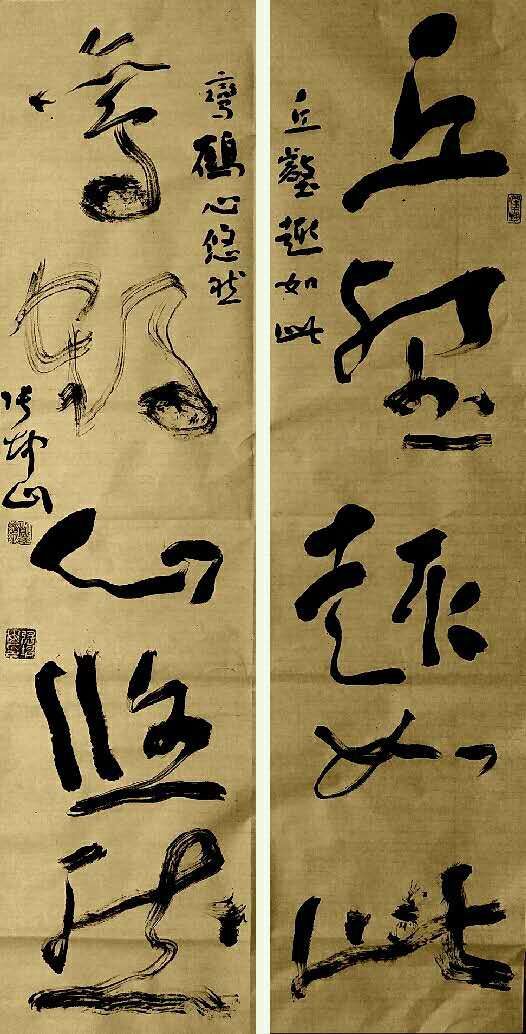 丘壑趣如此
丘壑趣如此
鸾鹤心悠然
鸾鹤心悠然
张坤山